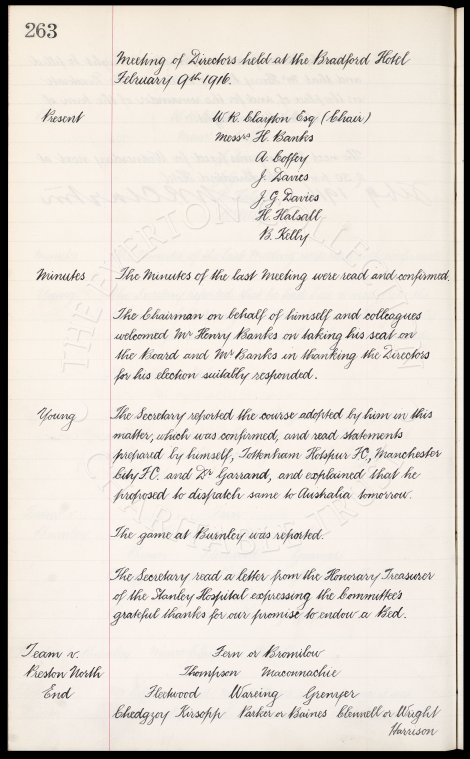 263
Meeting of Directors held at the Bradford Hotel
February 9th 1916.
Present
W. R. Clayton Esq (Chair)
Messrs H. Banks
A. Coffey
J. Davies
J. G. Davies
H. Halsall
B. Kelly
Minutes
The Minutes of the last Meeting were read and confirmed.
The Chairman on behalf of himself and colleagues
welcomed Mr Henry Banks on taking his seat on
the Board and Mr Banks in thanking the Directors
for his election suitably responded.
Young
The Secretary reported the course adopted by him in this
matter, which was confirmed, and read statements
prepared by himself, Tottenham Hotspur FC, Manchester
City F.C. and Dr Garrand, and explained that he
proposed to dispatch same to Australia tomorrow.
The game at Burnley was reported.
The Secretary read a letter from the Honorary Treasurer
of the Stanley Hospital expressing the Committee's
grateful thanks for our promise to endow a Bed.
Team v.
Preston North
End
Fern or Bromilow
Thompson Maconnachie
Fleetwood Wareing Grenyer
Chedgzoy Kirsopp Parker or Baines Clennell or Wright
Harrison
THE EVERTON COLLECTION
CHARITABLE TRUST